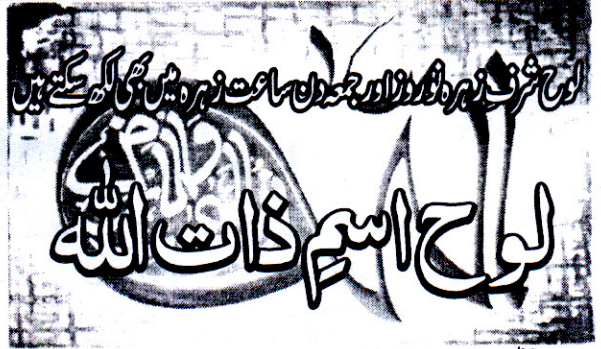 لوح شرف زہرہ نوروز اور جمعہ دن ساعت زہرہ میں بھی لکھ سکتے ہیں
لوح اسمِ ذات اللہ